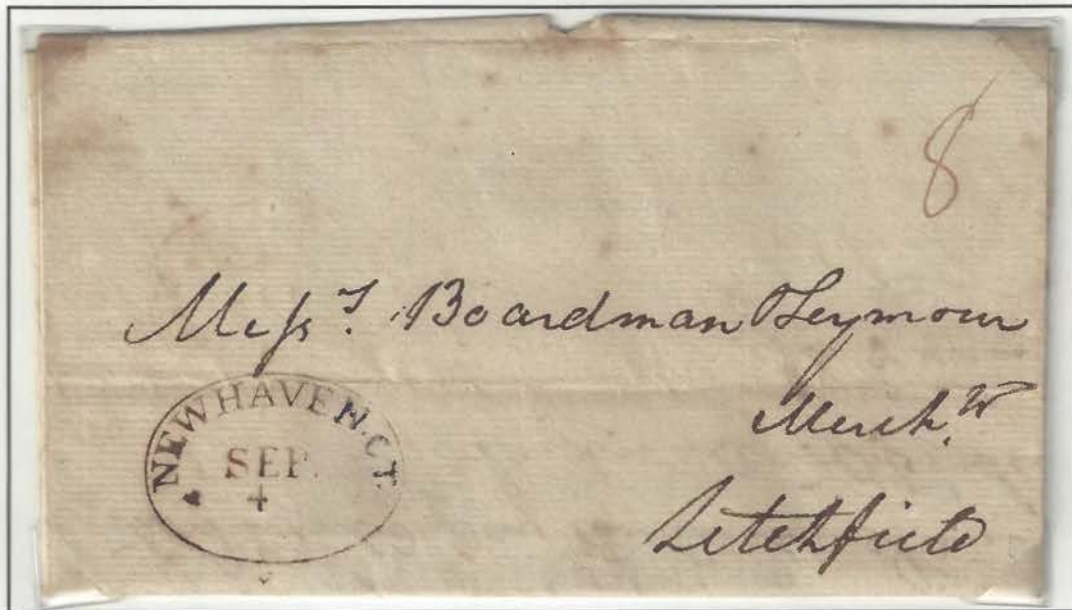 8
Mess.rs Boardman & Seymour
Merch.ts
Litchfield
NEWHAVEN.CT.
SEP.
4